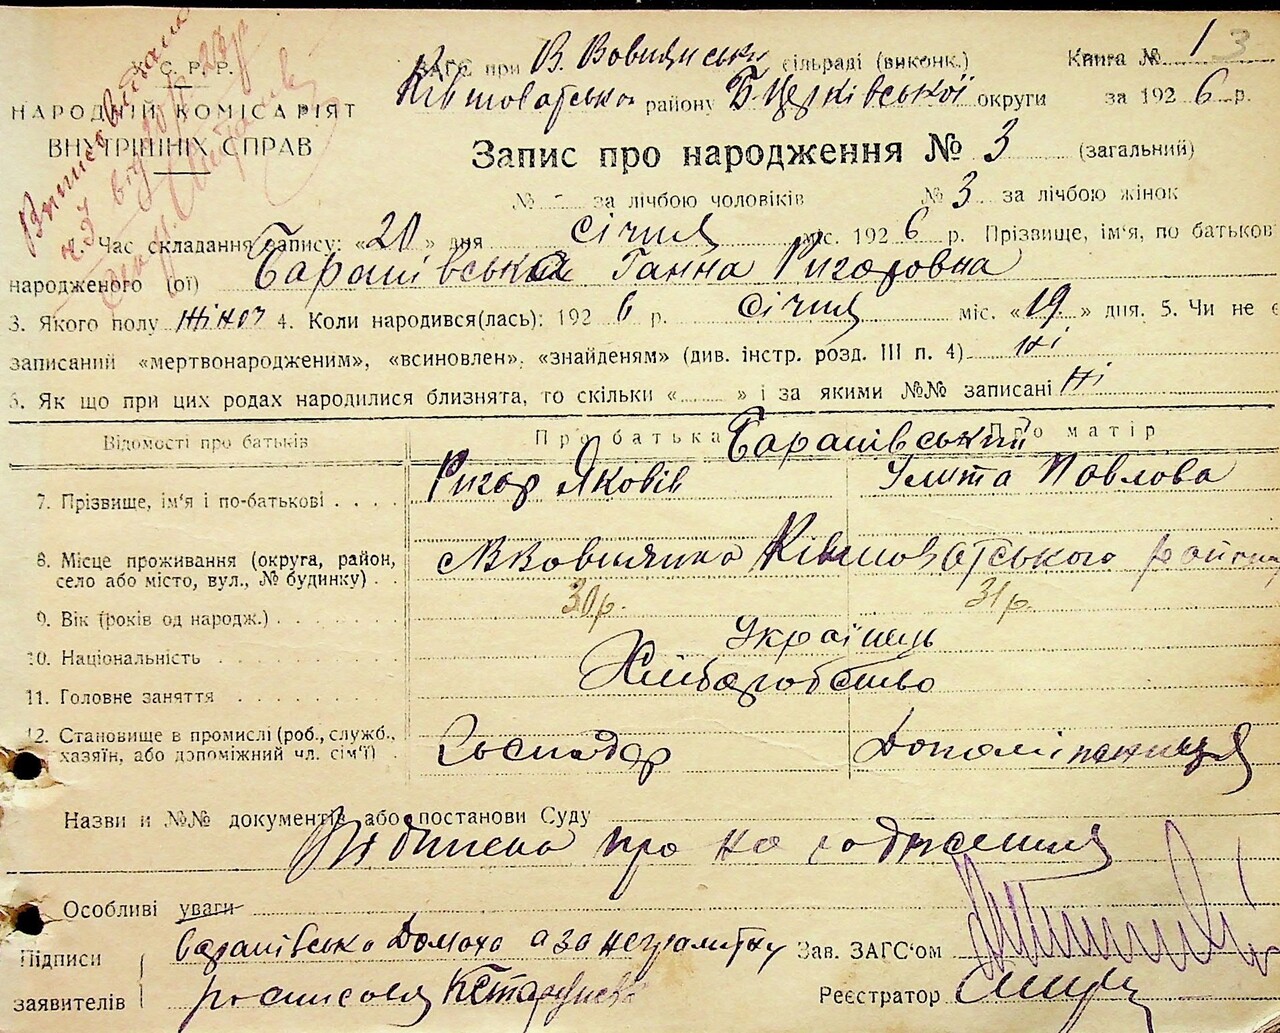 У.С.Р.Р.
НАРОДНІЙ КОМІСАРІЯТ
ВНУТРІШНІХ СПРАВ
ЗАГС при В. Вовнянськ сільраді (виконк.) Книга № 1 3
Ківшоватсько району Б-Церківської округи за 1926 р.
Запис про народження № 3 (загальний)
№ - за лічбою чоловіків № 3 за лічбою жінок
Час складання запису: «20» дня січня міс. 1926 р. Прізвище, ім'я, по батьков
народженого (ої) Ганна Ригоровна
3. Якого полу жіноч 4. Коли народився(лась): 1926 р. січня міс. «19» дня. 5. Чи не є
записаний «мертвонародженим», «всиновлен», «знайденям» (див. інстр. розд. III п. 4) ні
6. Як що при цих родах народилися близнята, то скільки «......» і за якими №№ записані ні
Відомості про батьків Про батька Про матір
7. Прізвище, ім'я і по-батькові . . . . Ригор Яковів Улита Павлова
8. Місце проживання (округа, район, село або місто, вул., № будинку) . . Ківшоватського району
9. Вік (років од народж.) . . . . . . . 30 р. 31 р.
10. Національність . . . . . . . . . . Українець
11. Головне заняття . . . . . . . . . Хліборобство
12. Становище в промислі (роб., служб., хазяїн, або допоміжний чл. сім'ї) . Господар Допоміжниця
Назви и №№ документів або постанови Суду
про народження
Особливі уваги
Підписи Домаха а за неграмотну Зав. ЗАГС'ом
заявителів росписался Реєстратор